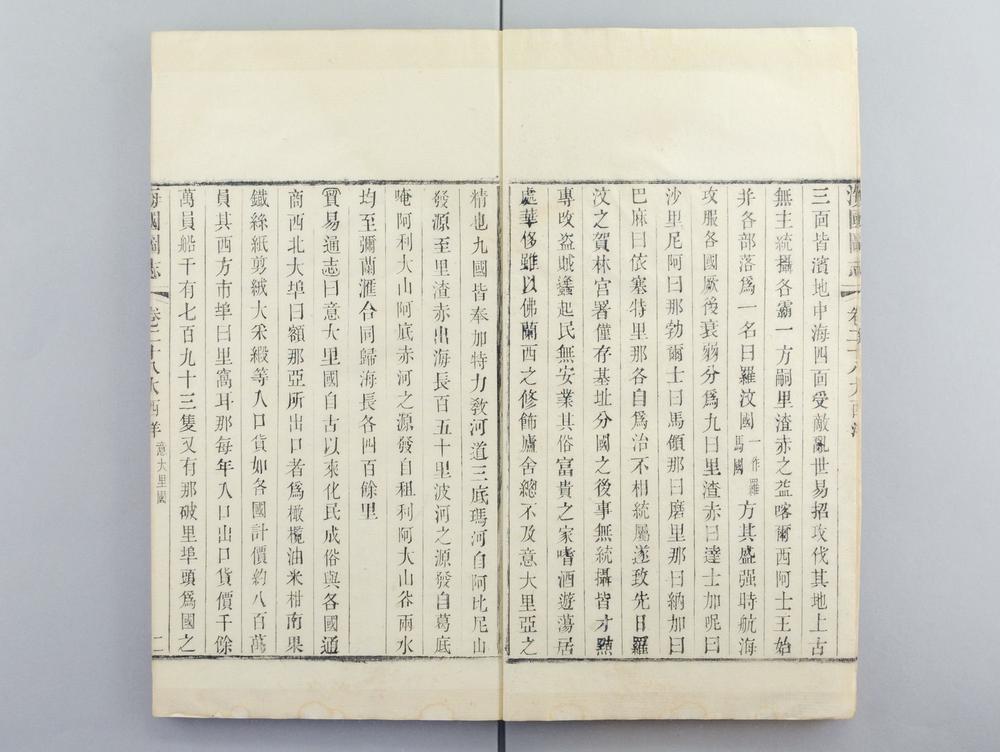 海國圖志 卷二十八大西洋
三面皆濱地中海四面受敵亂世易招攻伐其地上古
無主統攝各霸一方嗣里渣赤之益喀爾西阿士王始
并各部落爲一名曰羅汶國一作羅馬國方其盛强時航海
攻服各國厥後衰弱分爲九曰里渣赤曰達士加呢曰
沙里尼阿曰那勃爾士曰馬領那曰磨里那曰納加曰
巴麻曰依塞特里那各自爲治不相統屬遂致先日羅
汶之賀林宮署僅存基址分國之後事無統攝皆才黠
專攻盜賊蠭起民無安業其俗富貴之家嗜酒遊蕩居
處華侈雖以佛蘭西之修飾廬舍總不及意大里亞之
精也九國皆奉加特力敎河道三底瑪河自阿比尼山
發源至里渣赤出海長百五十里波河之源發自葛底
唵阿利大山阿底赤河之源發自租利阿大山谷兩水
均至彌蘭滙合同歸海長各四百餘里
貿易通志曰意大里國自古以來化民成俗與各國通
商西北大埠曰額那亞所出口者爲橄欖油米柑南果
鐵絲紙剪絨大呢緞等入口貨如各國計價約八百萬
員其西方市埠曰里窩耳那每年入口出口貨價千餘
萬員船千有七百九十三隻又有那破里埠頭爲國之
海國圖志 卷二十八大西洋 意大里國 二